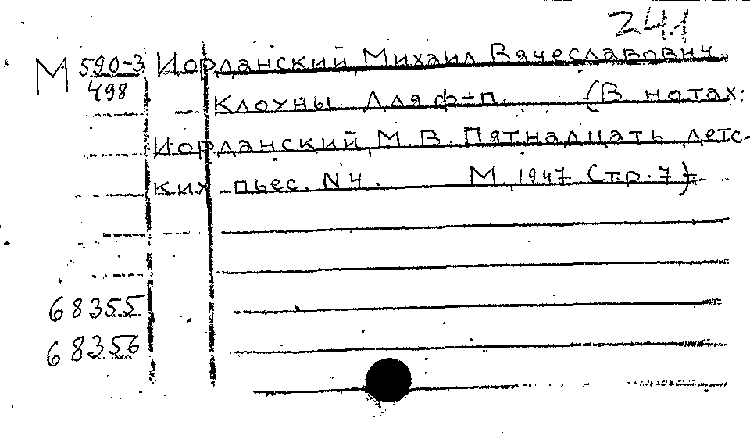 241
М 590-3 Иорданский Михаил Вячеславович
498 Клоуны Для ф-п. (В нотах:
Иорданский М.В. Пятнадцать детс-
ких пьес. N4. М. 1947 Стр. 7)
68355
68356